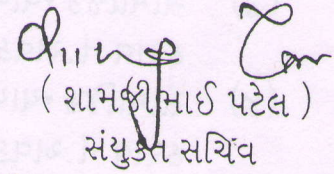 ( શામજીભાઈ પટેલ )
સંયુક્ત સચિવ